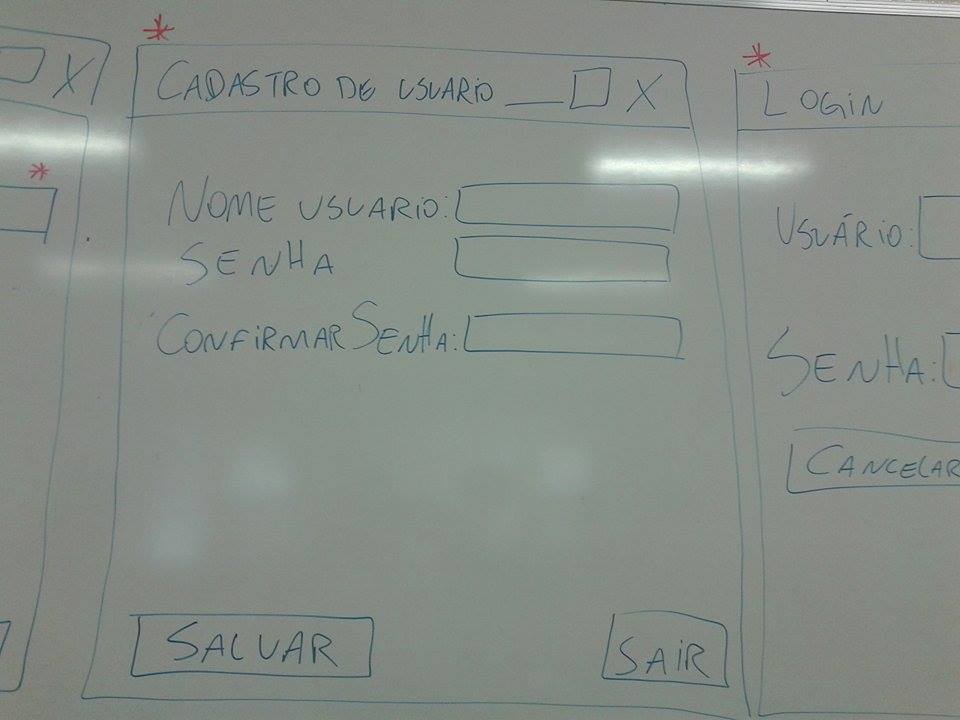 X
*
*
CADASTRO DE USUARIO __ X
NOME USUARIO:
SENHA
CONFIRMAR SENHA:
SALVAR
SAIR
*
LOGIN
USUÁRIO:
SENHA:
CANCELAR